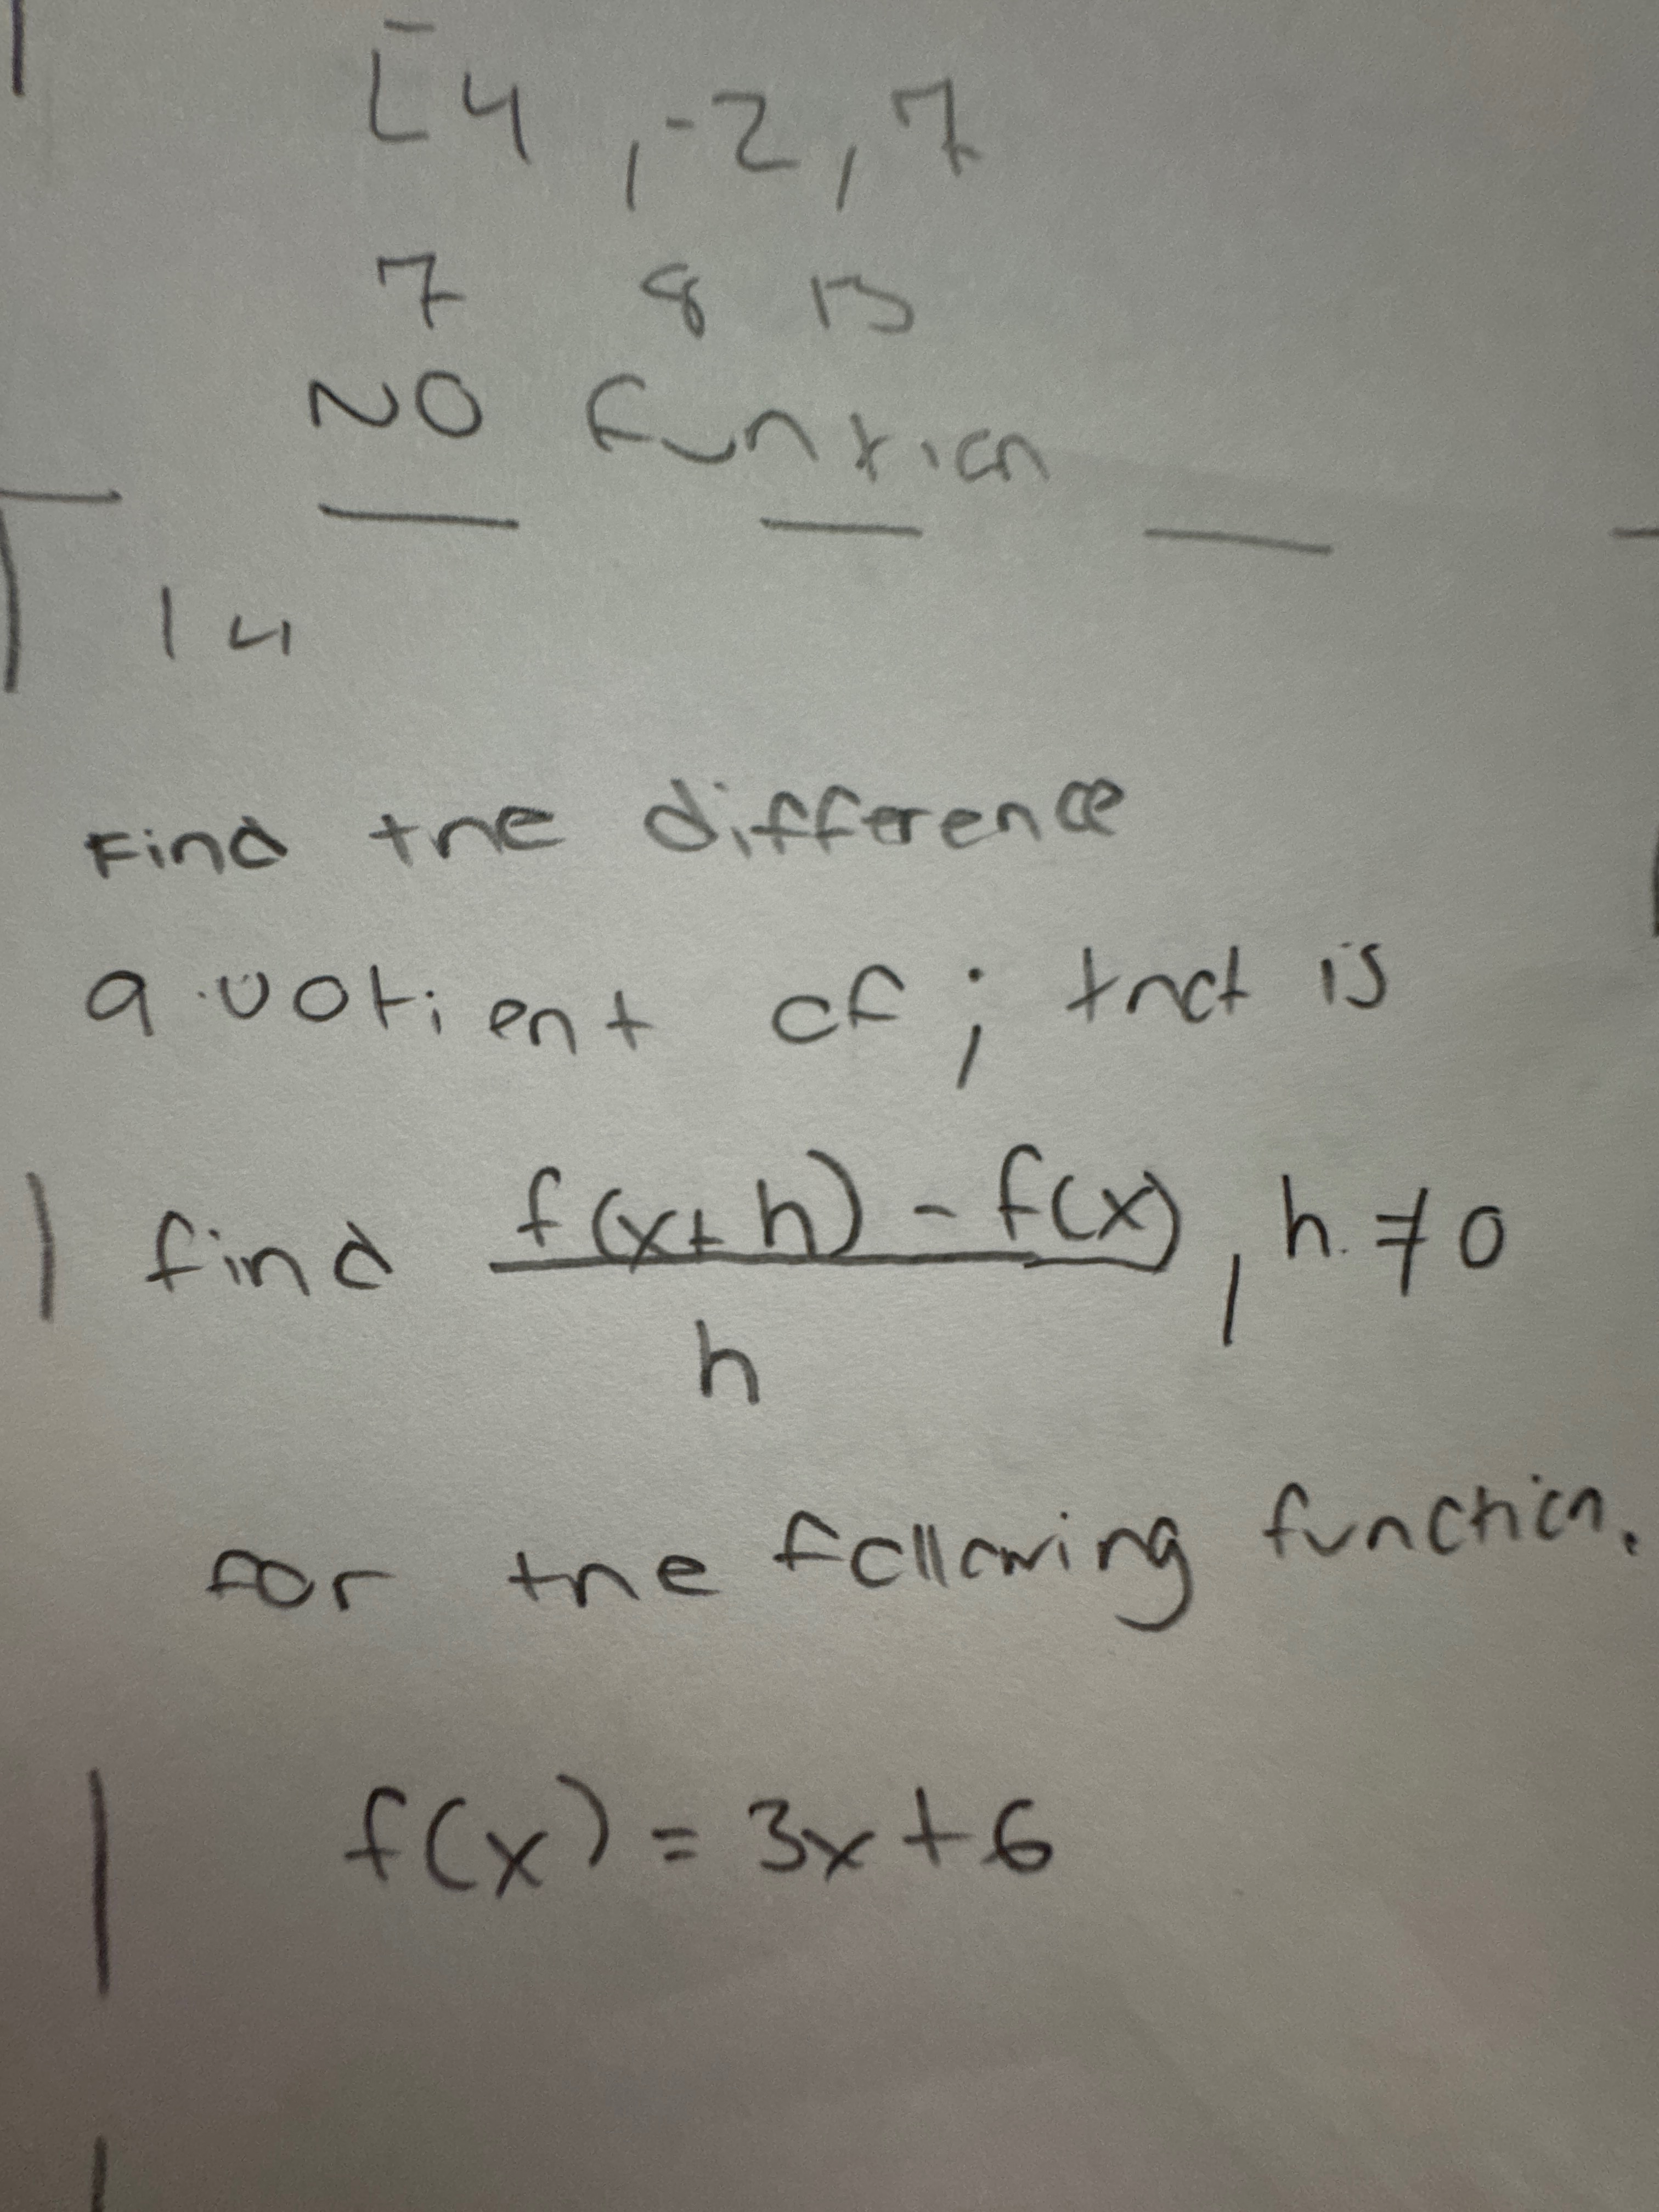 [4 , -2 , 7
7 8 13
NO funtion
14
Find the difference
quotient of ; that is
find f(x+h) - f(x) , h ≠ 0
h
for the following function.
f(x) = 3x + 6